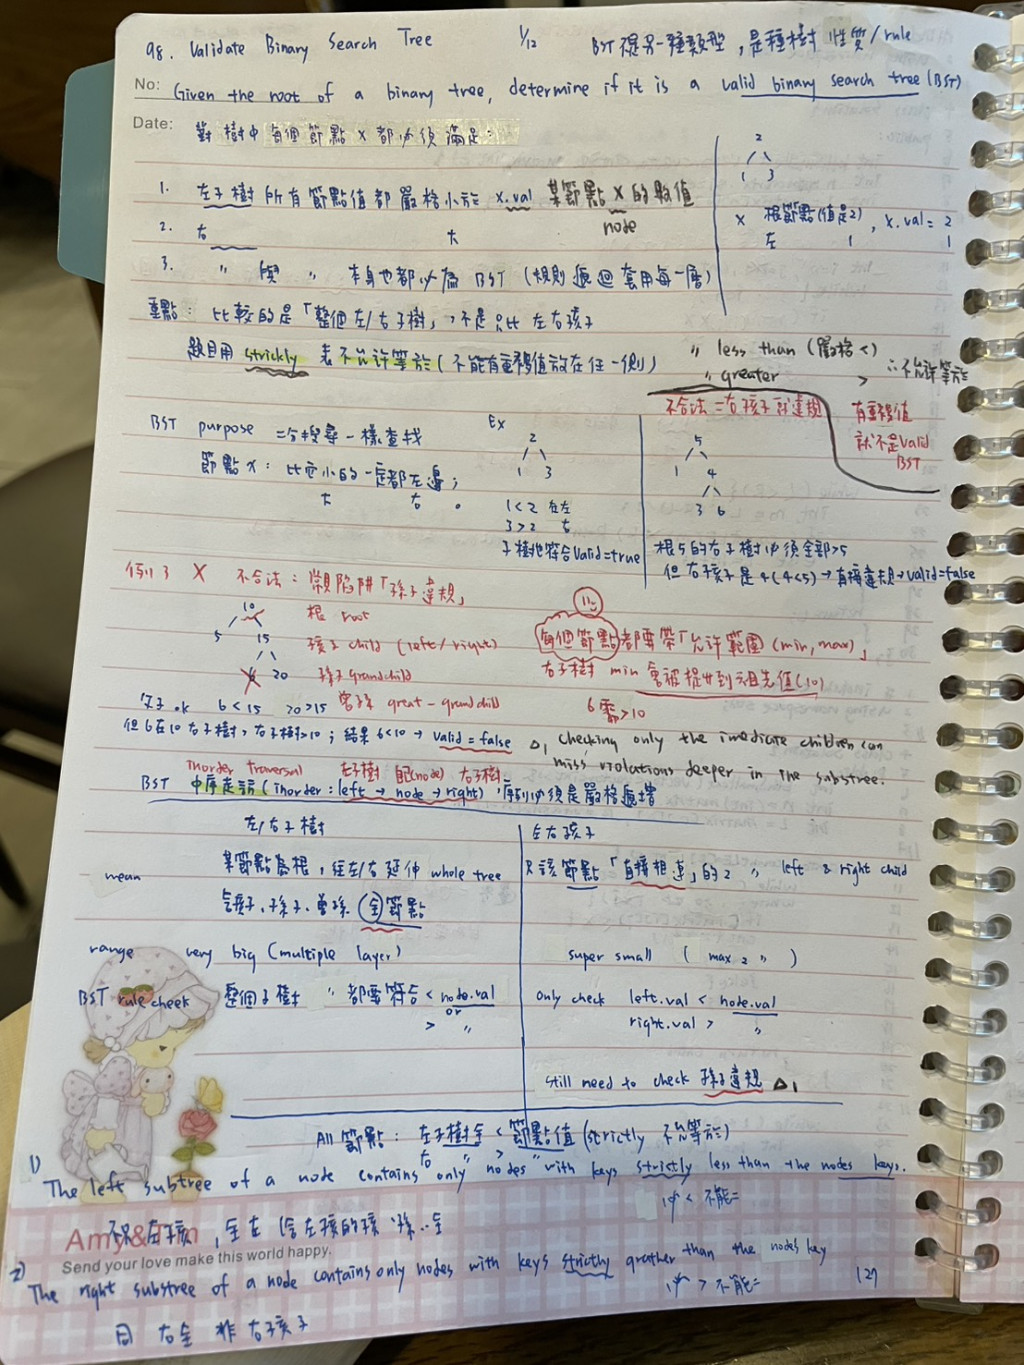 98. Validate Binary Search Tree 1/12 BST 是另一種類型, 是種樹 性質/rule
No: Given the root of a binary tree, determine if it is a valid binary search tree (BST)
Date: 對樹中每個節點 x 都必須滿足:
1. 左子樹所有節點值都嚴格小於 x.val 某節點 x 的數值
node
2. 右 大
3. " 與 " 本身也都必為 BST (規則遞迴套用每一層)
2
1 3
x 根節點(值是2), x.val = 2
左 1 1
重點: 比較的是「整個左/右子樹」, 不是只比左右孩子
題目用 strickly 表不允許等於 (不能有重複值放在任一側)
" less than (嚴格<)
" greater > ∴不允許等於
BST purpose 二分搜尋一樣查找
節點 x: 比它小的一定都左邊;
大 右。
Ex
2
1 3
1<2 在左
3>2 右
子樹也符合 valid=true
不合法 =右孩子就違規
5
1 4
3 6
根5的右子樹必須全部>5
但右孩子是4(4<5)→直接違規→valid=false
有重複值
就不是valid
BST
例3 X 不合法: 常見陷阱「孫子違規」
10 根 root
5 15 孩子 child (left/right)
6 20 孫子 grandchild
曾孫 great-grandchild
每個節點都要帶「允許範圍 (min, max)」
右子樹 min 會被提升到祖先值(10)
6需>10
好子.ok 6<15 20>15
但6在10右子樹, 右子樹>10; 結果6<10→ valid = false
△1 checking only the imedicate children can
miss violations deeper in the substree.
inorder traversal 左子樹 自己(node) 右子樹
BST 中序走訪 (inorder: left → node → right), 序列必須是嚴格遞增
左/右子樹 左右孩子
mean 某節點為根, 往左/右延伸 whole tree
含孩子、孫子、曾孫 全節點
只該節點「直接相連」的 2 " left & right child
range very big (multiple layer) super small ( max 2 " )
BST rule cheek 整個子樹 " 都要符合 < node.val
or
> "
only check left.val < node.val
right.val > "
still need to check 孫子違規 △1
All 節點: 左子樹全 < 節點值 (strictly 不允等於)
右 >
1) The left subtree of a node contains "only" nodes" with keys strictly less than the nodes keys.
必 < 不能=
不只左孩, 全左 含左孩的孩 孫..全
Amy&Tim
Send your love make this world happy.
2) The right substree of a node contains only nodes with keys strictly grather than the nodes key
必 > 不能=
同 右全 非右孩子
127